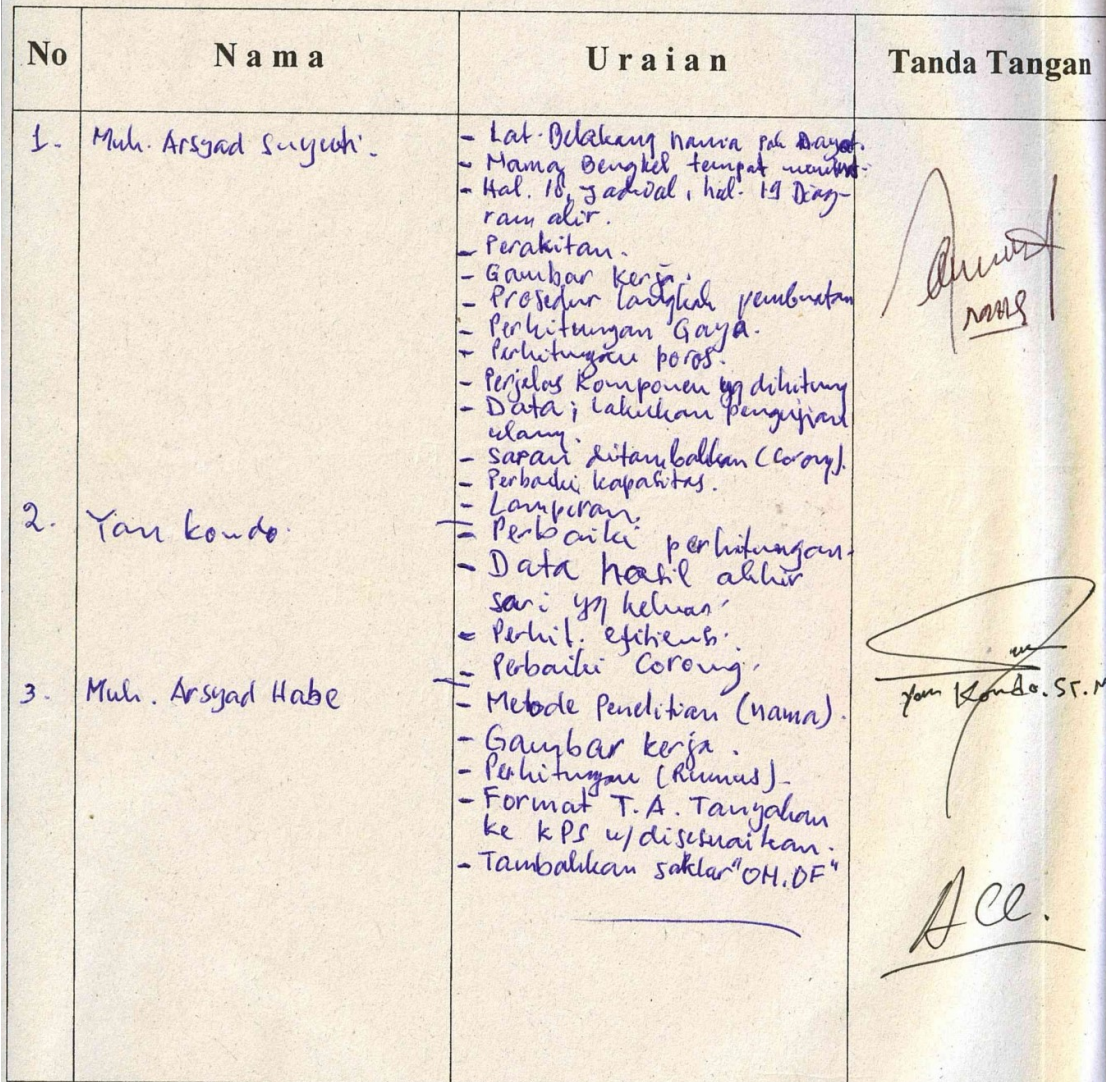 No Nama Uraian Tanda Tangan
1. Muh. Arsyad Suyuti.
- Lat. Belakang nama pak Dayat.
- Nama Bengkel tempat
- Hal. 18, Jadwal, hal. 19 Diag-
ram alir.
- Perakitan.
- Gambar kerja.
- Prosedur langkah pembuatan
- Perhitungan Gaya.
- Perhitungan poros.
- Perjelas Komponen yg dihitung
- Data; lakukan pengujian
ulang.
- saran ditambahkan (Corong).
- Perbaiki kapasitas.
- Lampiran.
2. Yan Kondo.
- Perbaiki perhitungan.
- Data hasil akhir
sari yg keluar.
- Perhit. efisiensi.
- Perbaiki Corong.
Yan Kondo. ST. M
3. Muh. Arsyad Habe
- Metode Penelitian (nama).
- Gambar kerja.
- Perhitungan (Rumus).
- Format T.A. Tanyakan
ke KPS u/ disesuaikan.
- Tambahkan saklar "ON.OF"
Acc.